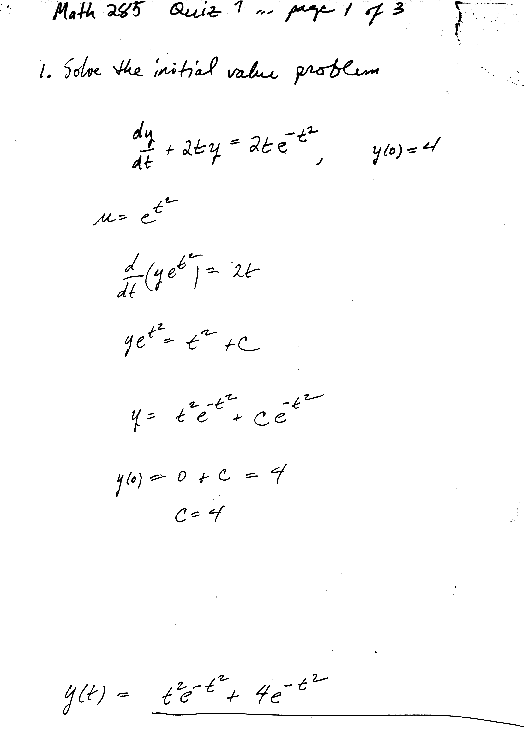 Math 285 Quiz 1 ... page 1 of 3
1. Solve the initial value problem
dy/dt + 2ty = 2te^{-t^2}, y(0) = 4
u = e^{t^2}
d/dt (ye^{t^2}) = 2t
ye^{t^2} = t^2 + C
y = t^2e^{-t^2} + Ce^{-t^2}
y(0) = 0 + C = 4
C = 4
y(t) = t^2e^{-t^2} + 4e^{-t^2}